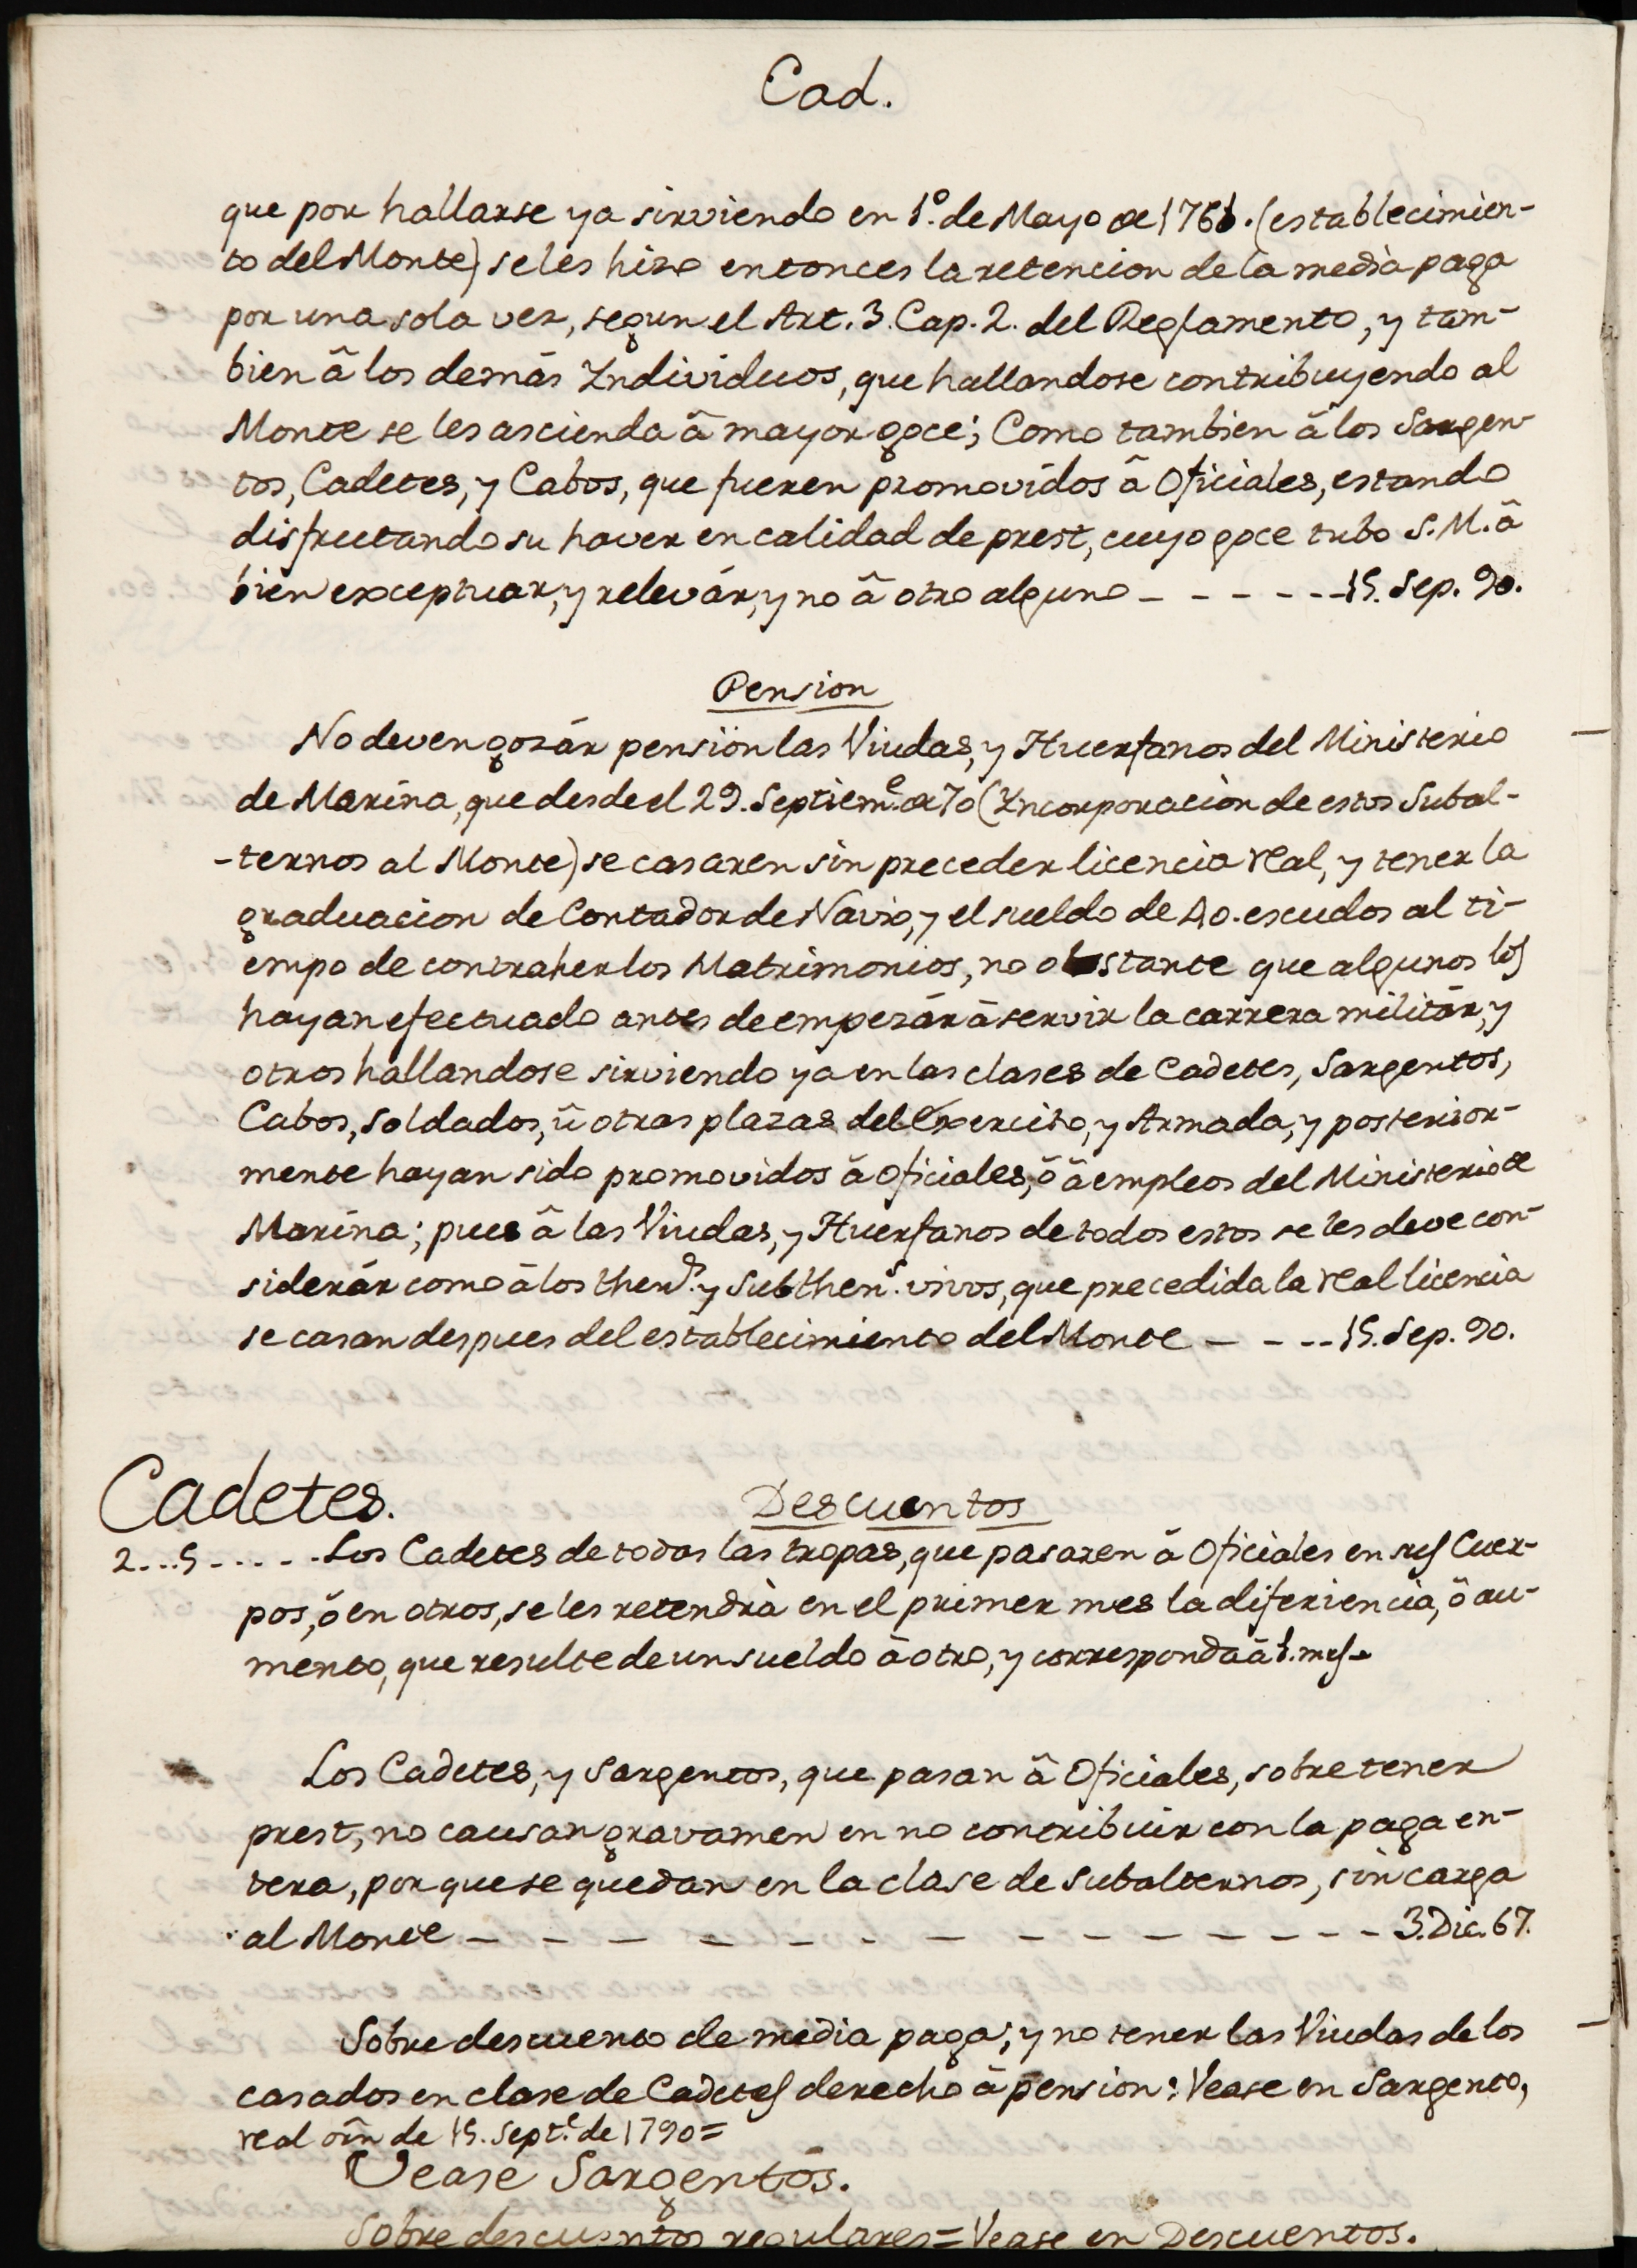 Cad.
que por hallarse ya sirviendo en 1.º de Mayo de 1761. (establecimien-
to del Monte) se les hizo entonces la retencion de la media paga
por una sola vez, segun el Art. 3. Cap. 2. del Reglamento, y tam-
bien â los demàs Individuos, que hallandose contribuyendo al
Monte se les ascienda â mayor goce; Como tambien â los Sargen-
tos, Cadetes, y Cabos, que fueren promovidos â Oficiales, estando
disfrutando su haver en calidad de prest, cuyo goce tubo S. M. â
bien exceptuar, y relevár, y no â otro alguno - - - - - - 15. Sep. 90.
Pension
No deven gozár pension las Viudas, y Huerfanos del Ministerio
de Marina, que desde el 29. Septiem.e de 70 (Incorporacion de estos Subal-
-ternos al Monte) se casaren sin preceder licencia real, y tener la
graduacion de Contador de Navio, y el sueldo de 40. escudos al ti-
empo de contraher los Matrimonios, no obstante que algunos los
hayan efectuado antes de empezár â servir la carrera militár, y
otros hallandose sirviendo ya en las clases de Cadetes, Sargentos,
Cabos, Soldados, û otras plazas del Exercito, y Armada, y posterior-
mente hayan sido promovidos â Oficiales, ô â empleos del Ministerio de
Marina; pues â las Viudas, y Huerfanos de todos estos se les deve con-
siderár como â los then.s y Subthen.s vivos, que precedida la real licencia
se casan despues del establecimiento del Monte - - - - 15. Sep. 90.
Cadetes.
Descuentos
2...5 - - - - Los Cadetes de todas las tropas, que pasaren â Oficiales en sus Cuer-
pos, ô en otros, se les retendrà en el primer mes la diferiencia, ô au-
mento, que resulte de un sueldo â otro, y corresponda â 1. mes.
Los Cadetes, y Sargentos, que pasan â Oficiales, sobre tener
prest, no causan gravamen en no contribuir con la paga en-
tera, por que se quedan en la clase de Subalternos, sin carga
al Monte - - - - - - - - - - - - - - 3. Dic. 67.
Sobre descuento de media paga; y no tener las Viudas de los
casados en clase de Cadetes derecho â pension: Vease en Sargento,
real orn de 15. Sept.e de 1790=
Vease Sargentos.
Sobre descuentos regulares = Vease en Descuentos.